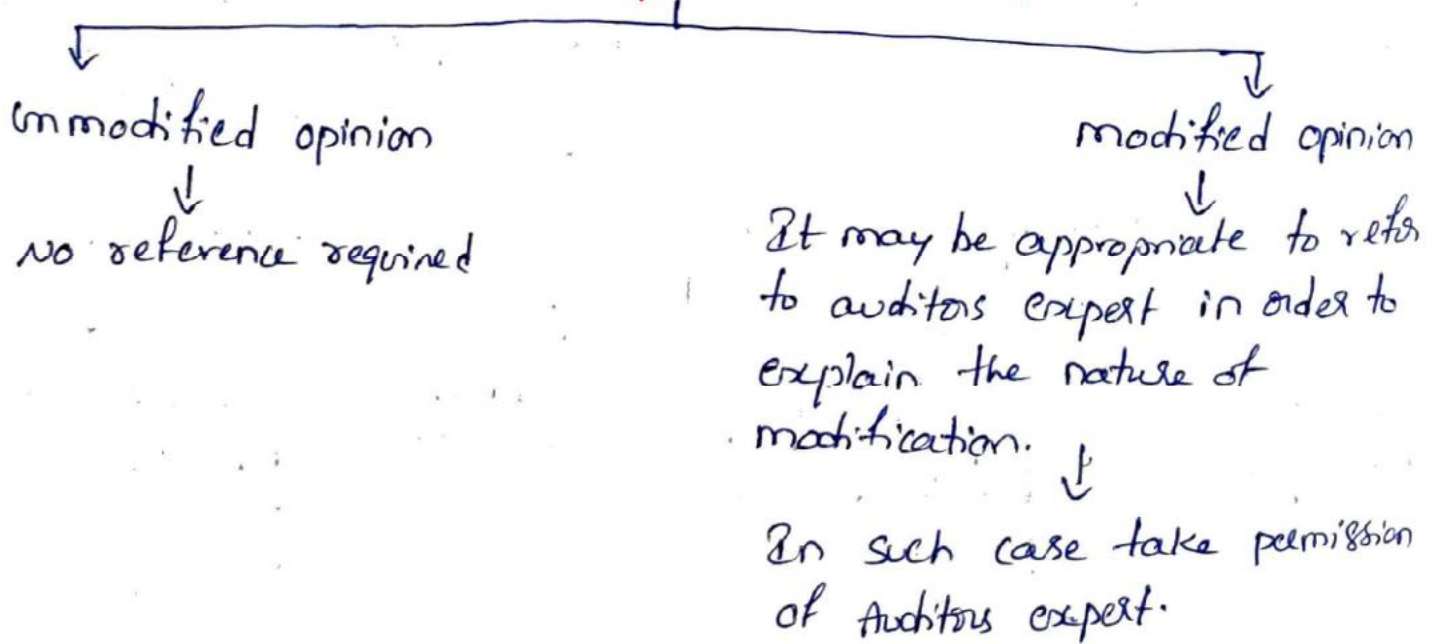 unmodified opinion
modified opinion
No reference required
It may be appropriate to refer
to auditors expert in order to
explain the nature of
modification.
In such case take permission
of Auditors expert.